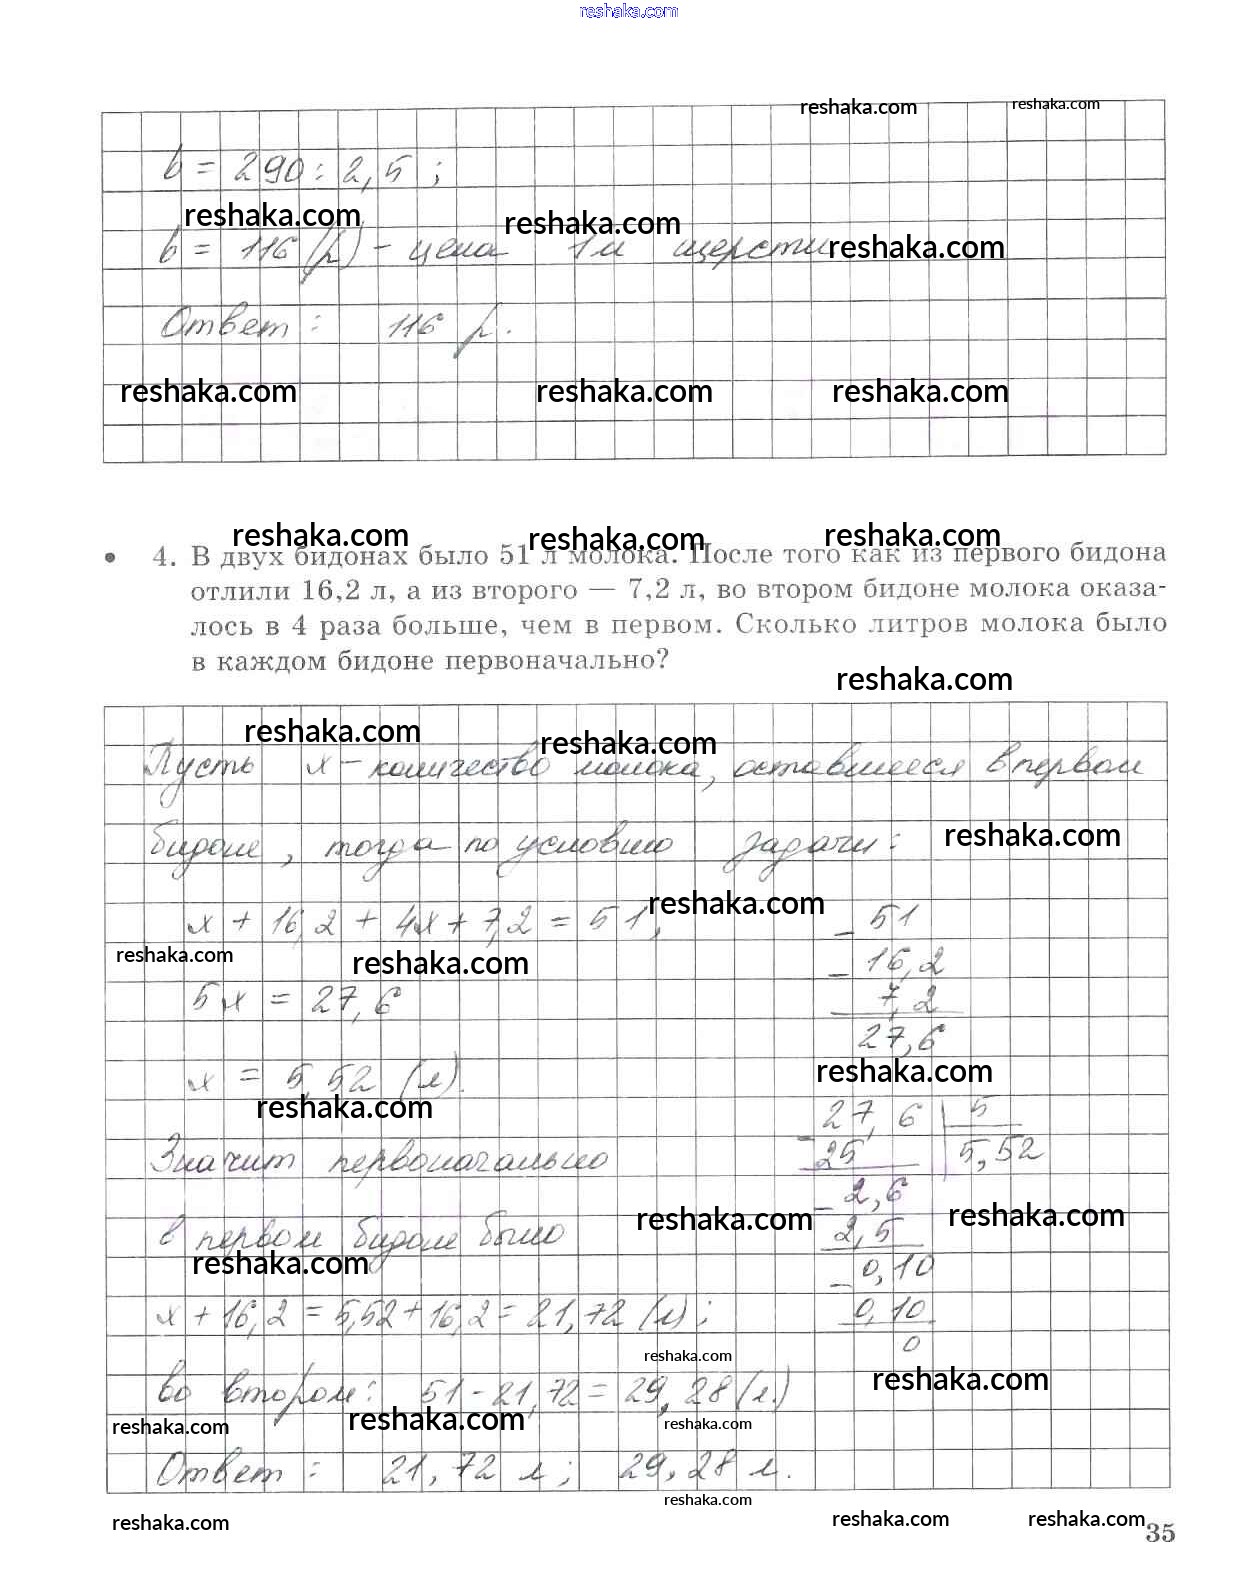 reshaka.com
reshaka.com
reshaka.com
b = 290 : 2,5 ;
reshaka.com
reshaka.com
reshaka.com
b = 116 (р) - цена 1м шерсти
Ответ : 116 р.
reshaka.com
reshaka.com
reshaka.com
reshaka.com
reshaka.com
reshaka.com
• 4. В двух бидонах было 51 л молока. После того как из первого бидона
отлили 16,2 л, а из второго — 7,2 л, во втором бидоне молока оказа-
лось в 4 раза больше, чем в первом. Сколько литров молока было
в каждом бидоне первоначально?
reshaka.com
reshaka.com
reshaka.com
Пусть х - количество молока, оставшееся в первом
бидоне, тогда по условию задачи:
reshaka.com
reshaka.com
х + 16,2 + 4х + 7,2 = 51,
reshaka.com
reshaka.com
5х = 27,6
х = 5,52 (л).
reshaka.com
Значит первоначально
в первом бидоне было
reshaka.com
х + 16,2 = 5,52 + 16,2 = 21,72 (л) ;
во втором : 51 - 21,72 = 29,28 (л)
reshaka.com
reshaka.com
Ответ : 21,72 л ; 29,28 л.
- 51
- 16,2
7,2
27,6
reshaka.com
- 27,6 5
25 5,52
- 2,6
reshaka.com
reshaka.com
2,5
- 0,10
0,10
0
reshaka.com
reshaka.com
reshaka.com
reshaka.com
reshaka.com
reshaka.com
reshaka.com
35